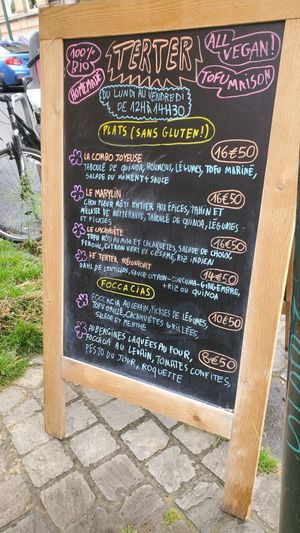 100% BIO
HOMEMADE
TERTER
ALL VEGAN!
TOFU MAISON
DU LUNDI AU VENDREDI
DE 12H À 14H30
PLATS (SANS GLUTEN!)
LA COMBO JOYEUSE 16€50
TABOULÉ DE QUINOA, HOUMOUS, LÉGUMES, TOFU MARINÉ,
SALADE DU MOMENT + SAUCE
LE MARYLIN 16€50
CHOU FLEUR RÔTI ENTIER AUX ÉPICES, TAHIN ET
MÉLASSE DE BETTERAVES, TABOULÉ DE QUINOA, LÉGUMES
ET PICKLES
LE CACAHUÈTE 16€50
TOFU RÔTI AU MISO ET CACAHUÈTES, SALADE DE CHOUX,
CITRON VERT ET CÉSAME, RIZ INDIEN
LE TERTER RÉCONFORT 14€50
DAHL DE LENTILLES, SAUCE CITRON-CURCUMA-GINGEMBRE,
+ RIZ OU QUINOA
FOCCACIAS
FOCCACIA AU LEVAIN, PICKLES DE LÉGUMES, 10€50
TOFU GRILLÉ, CACAHUÈTES GRILLÉES,
SALADE ET MENTHE
AUBERGINES LAQUÉES AU FOUR, 8€50
FOCCACIA AU LEVAIN, TOMATES CONFITES,
PESTO DU JOUR, ROQUETTE